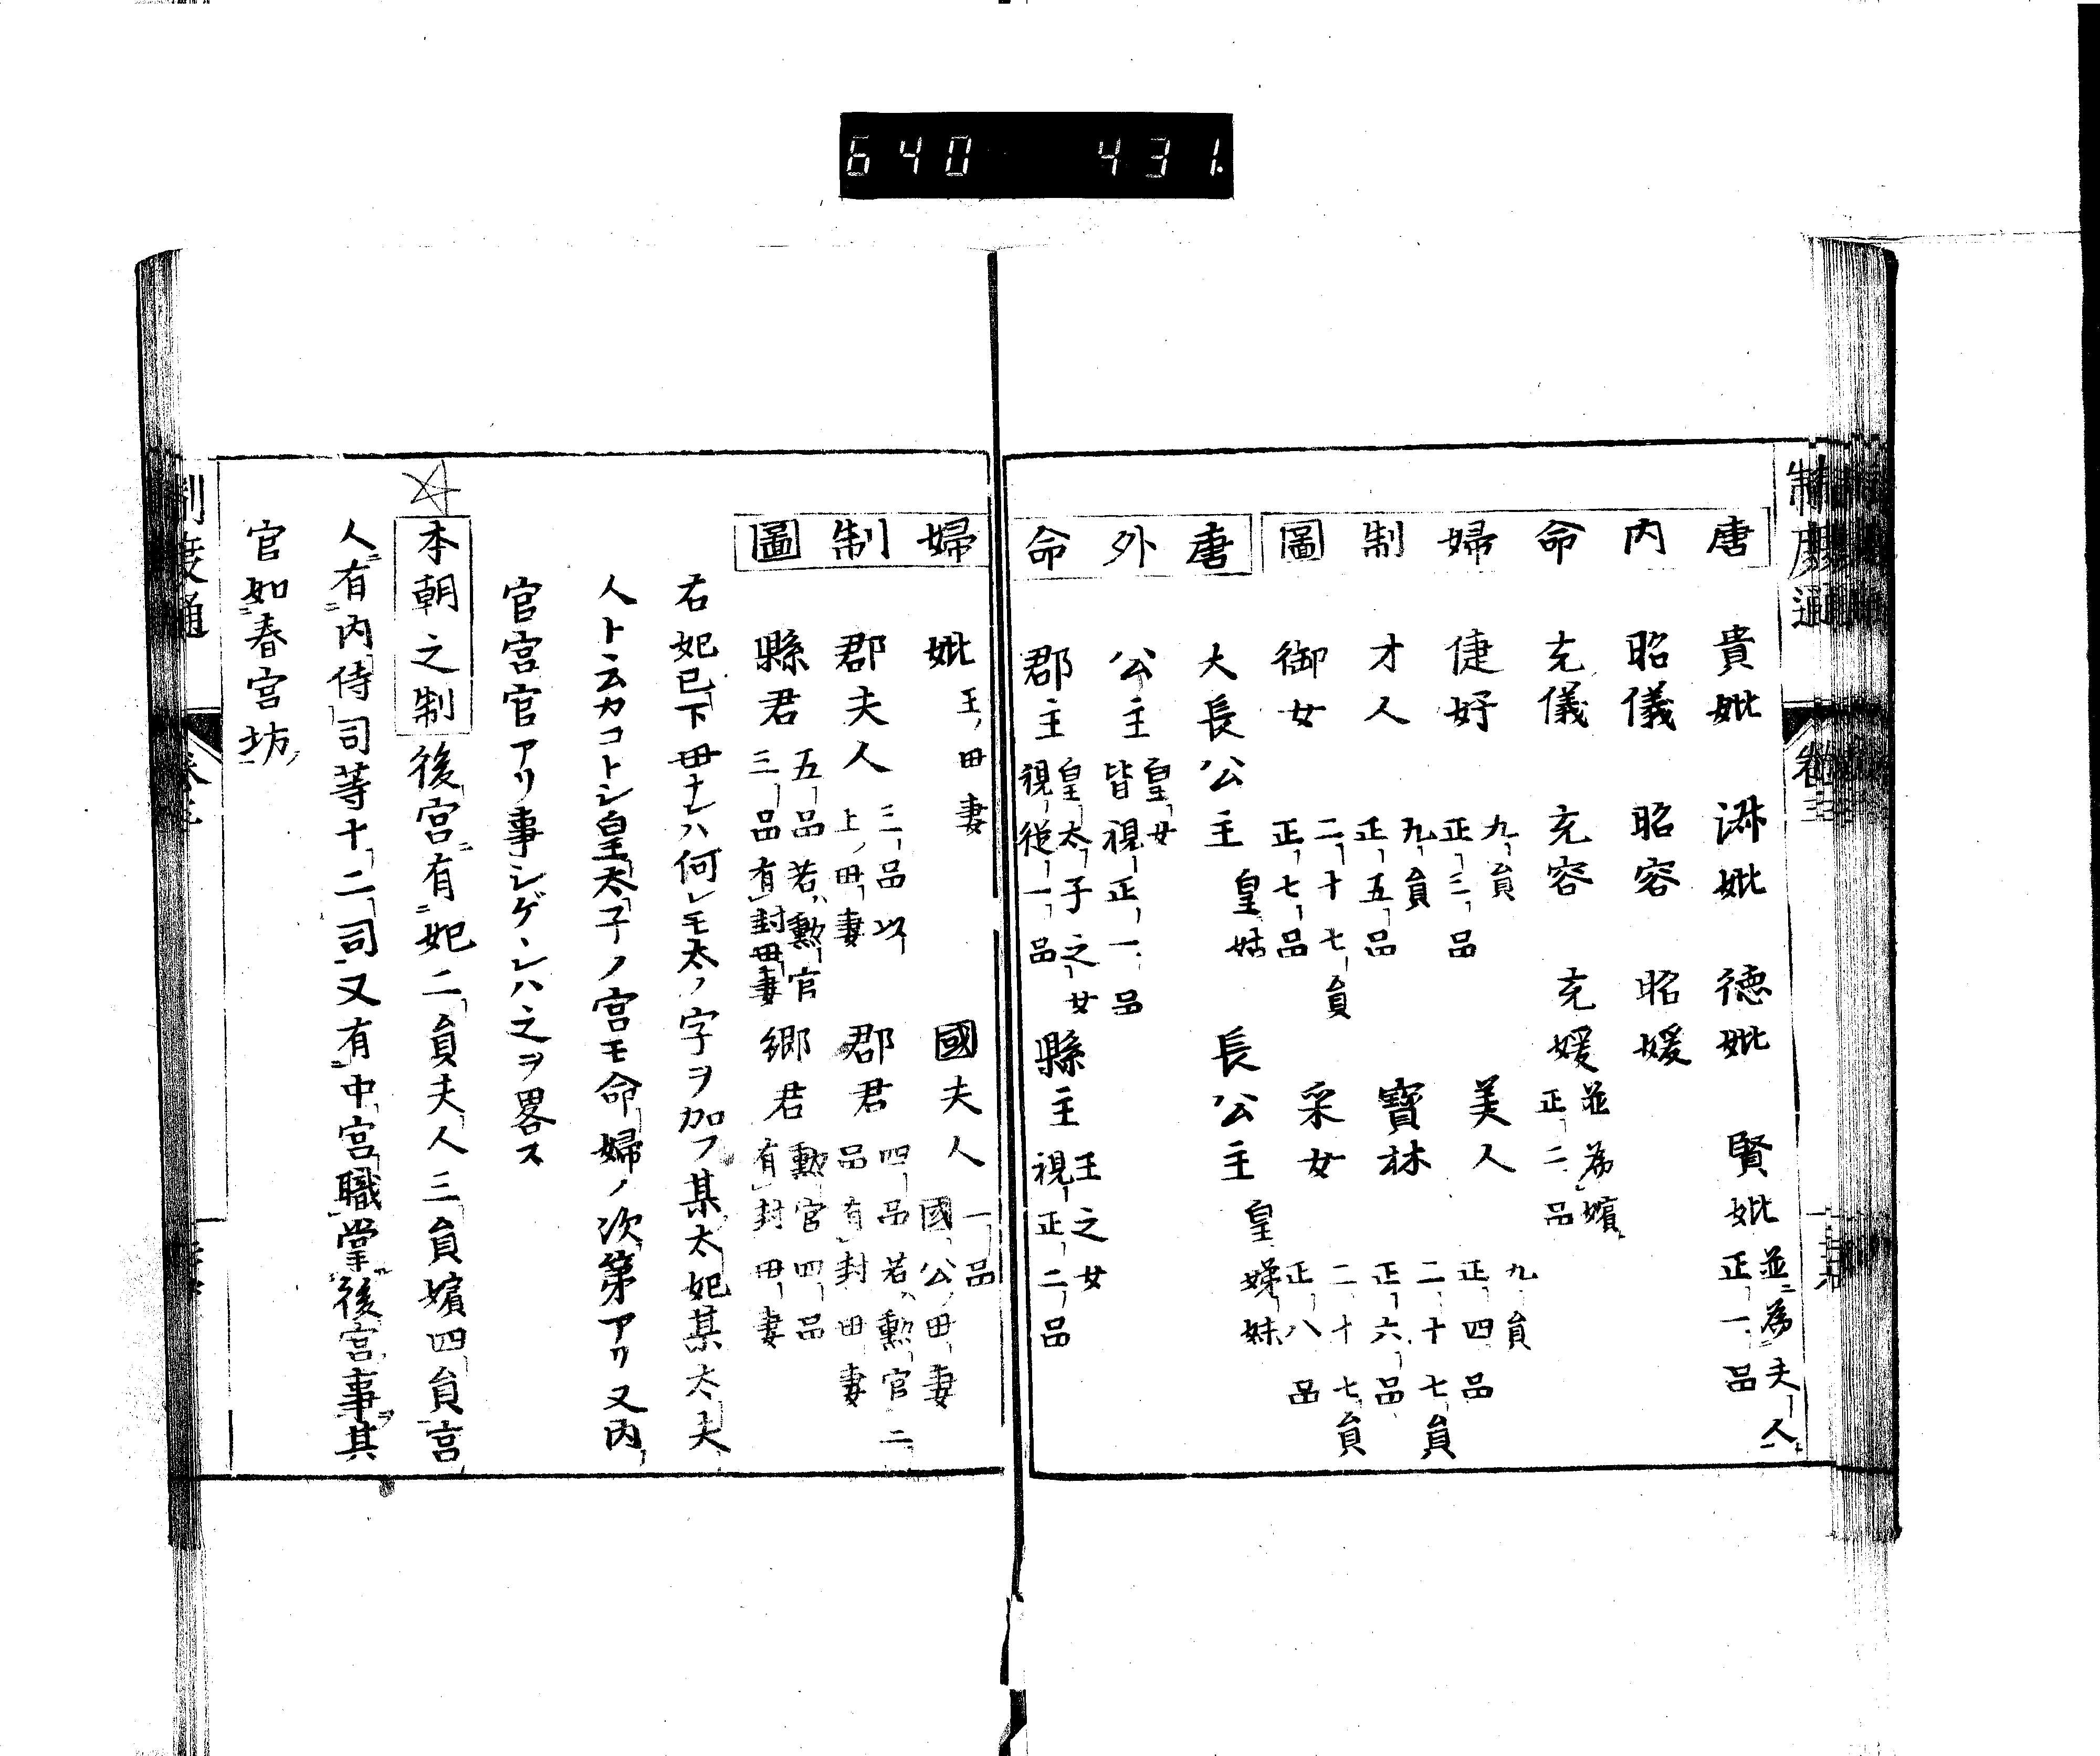 640 431.
制度通 卷三
唐 貴妣 淋妣 徳妣 賢妣 並為夫人 正一品
内 昭儀 昭容 昭媛
命 充儀 充容 充媛 並為嬪 正二品
婦 倢妤 九員 正三品 美人 九員 正四品
制 才人 九員 正五品 寶林 二十七員 正六品
圖 御女 二十七員 正七品 采女 二十七員 正八品
唐 大長公主 皇姑 長公主 皇娣妹
外 公主 皇女 皆視正一品
命 郡主 皇太子之女 視從一品 縣主 王之女 視正二品
婦 妣 王毋妻 國夫人 一品 國公毋妻
制 郡夫人 三品以上毋妻 郡君 四品若勲官二品有封毋妻
圖 縣君 五品若勲官三品有封毋妻 郷君 勲官四品有封毋妻
右妃已下毋ナレハ何レモ太ノ字ヲ加フ某太妃某太夫
人ト云カコトシ皇太子ノ宮モ命婦ノ次第アリ又内
官宮官アリ事シゲヽレハ之ヲ畧ス
本朝之制 後宮有妃二員夫人三員嬪四員宮
人有内侍司等十二司又有中宮職掌後宮事其
官如春宮坊
制度通